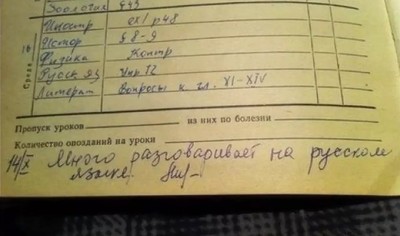 Зоология § 33
Иностр ex1 p48
Истор § 8-9
Физика Контр
Русск яз Упр 12
Литерат Вопросы к гл. VI-XIV
Среда 16
Пропуск уроков из них по болезни
Количество опозданий на уроки
14/X Много разговаривает на русском
языке.